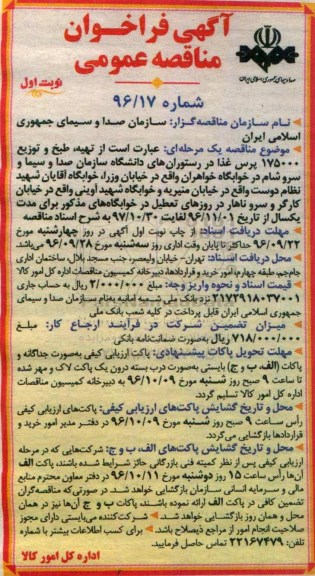 آگهی فراخوان
مناقصه عمومی
صدا و سیمای جمهوری اسلامی ایران
نوبت اول
شماره ۹۶/۱۷
نام سازمان مناقصه‌گزار: سازمان صدا و سیمای جمهوری
اسلامی ایران
موضوع مناقصه یک مرحله‌ای: عبارت است از تهیه، طبخ و توزیع
۱۷۵۰۰۰ پرس غذا در رستوران‌های دانشگاه سازمان صدا و سیما و
سرو شام در خوابگاه خواهران واقع در خیابان وزرا، خوابگاه آقایان شهید
نظام دوست واقع در خیابان منیریه و خوابگاه شهید آوینی واقع در خیابان
کارگر و سرو ناهار در روزهای تعطیل در خوابگاه‌های مذکور برای مدت
یکسال از تاریخ ۹۶/۱۱/۰۱ لغایت ۹۷/۱۰/۳۰ به شرح اسناد مناقصه
مهلت دریافت اسناد: از چاپ نوبت اول آگهی در روز چهارشنبه مورخ
۹۶/۰۹/۲۲ حداکثر تا پایان وقت اداری روز سه‌شنبه مورخ ۹۶/۰۹/۲۸ می‌باشد.
محل دریافت اسناد: تهران- خیابان ولیعصر، جنب مسجد بلال، ساختمان اداری
جام‌جم، طبقه چهارم، امور خرید و قراردادها، دبیرخانه کمیسیون مناقصات اداره کل امور کالا
قیمت اسناد و نحوه واریز وجه: مبلغ ۲/۰۰۰/۰۰۰ ریال به حساب جاری
۲۱۷۳۹۱۸۰۳۷۰۰۱ نزد بانک ملی شعبه امانیه به‌نام سازمان صدا و سیمای
جمهوری اسلامی ایران قابل پرداخت در کلیه شعب بانک ملی
میزان تضمین شرکت در فرآیند ارجاع کار: مبلغ
۷۱۸/۰۰۰/۰۰۰ ریال به‌صورت ضمانت‌نامه بانکی
مهلت تحویل پاکات پیشنهادی: پاکت ارزیابی کیفی به‌صورت جداگانه و
پاکات (الف، ب و ج) بایستی به‌صورت درب بسته درون یک پاکت لاک و مهر شده
تا ساعت ۹ صبح روز شنبه مورخ ۹۶/۱۰/۰۹ به دبیرخانه کمیسیون مناقصات
اداره کل امور کالا تسلیم گردد.
محل و تاریخ گشایش پاکت‌های ارزیابی کیفی: پاکت‌های ارزیابی کیفی
رأس ساعت ۹ صبح روز شنبه مورخ ۹۶/۱۰/۰۹ در دفتر مدیر امور خرید و
قراردادها بازگشایی می‌گردد.
محل و تاریخ گشایش پاکت‌های الف، ب و ج: شرکت‌هایی که در مرحله
ارزیابی کیفی پس از نظر کمیته فنی بازرگانی حائز شرایط شده باشند، پاکت الف
آن‌ها رأس ساعت ۱۵ روز دوشنبه مورخ ۹۶/۱۰/۱۱ در دفتر معاون محترم منابع
مالی و سرمایه انسانی سازمان بازگشایی خواهد شد. در صورتی‌که مناقصه‌گران
تضمین کافی در پاکت الف ارائه نموده باشند، پاکات ب و ج آن‌ها نیز در همان
محل و همان روز بازگشایی خواهد شد. شرکت‌کننده می‌بایستی دارای مجوز
صلاحیت انجام امور از مراجع ذیصلاح باشد. برای کسب اطلاعات بیشتر با شماره
تلفن: ۲۲۱۶۷۴۷۹ تماس حاصل فرمایید.
اداره کل امور کالا